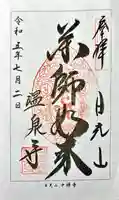 奉拝
日光山
薬師如来
温泉寺
令和五年七月二日